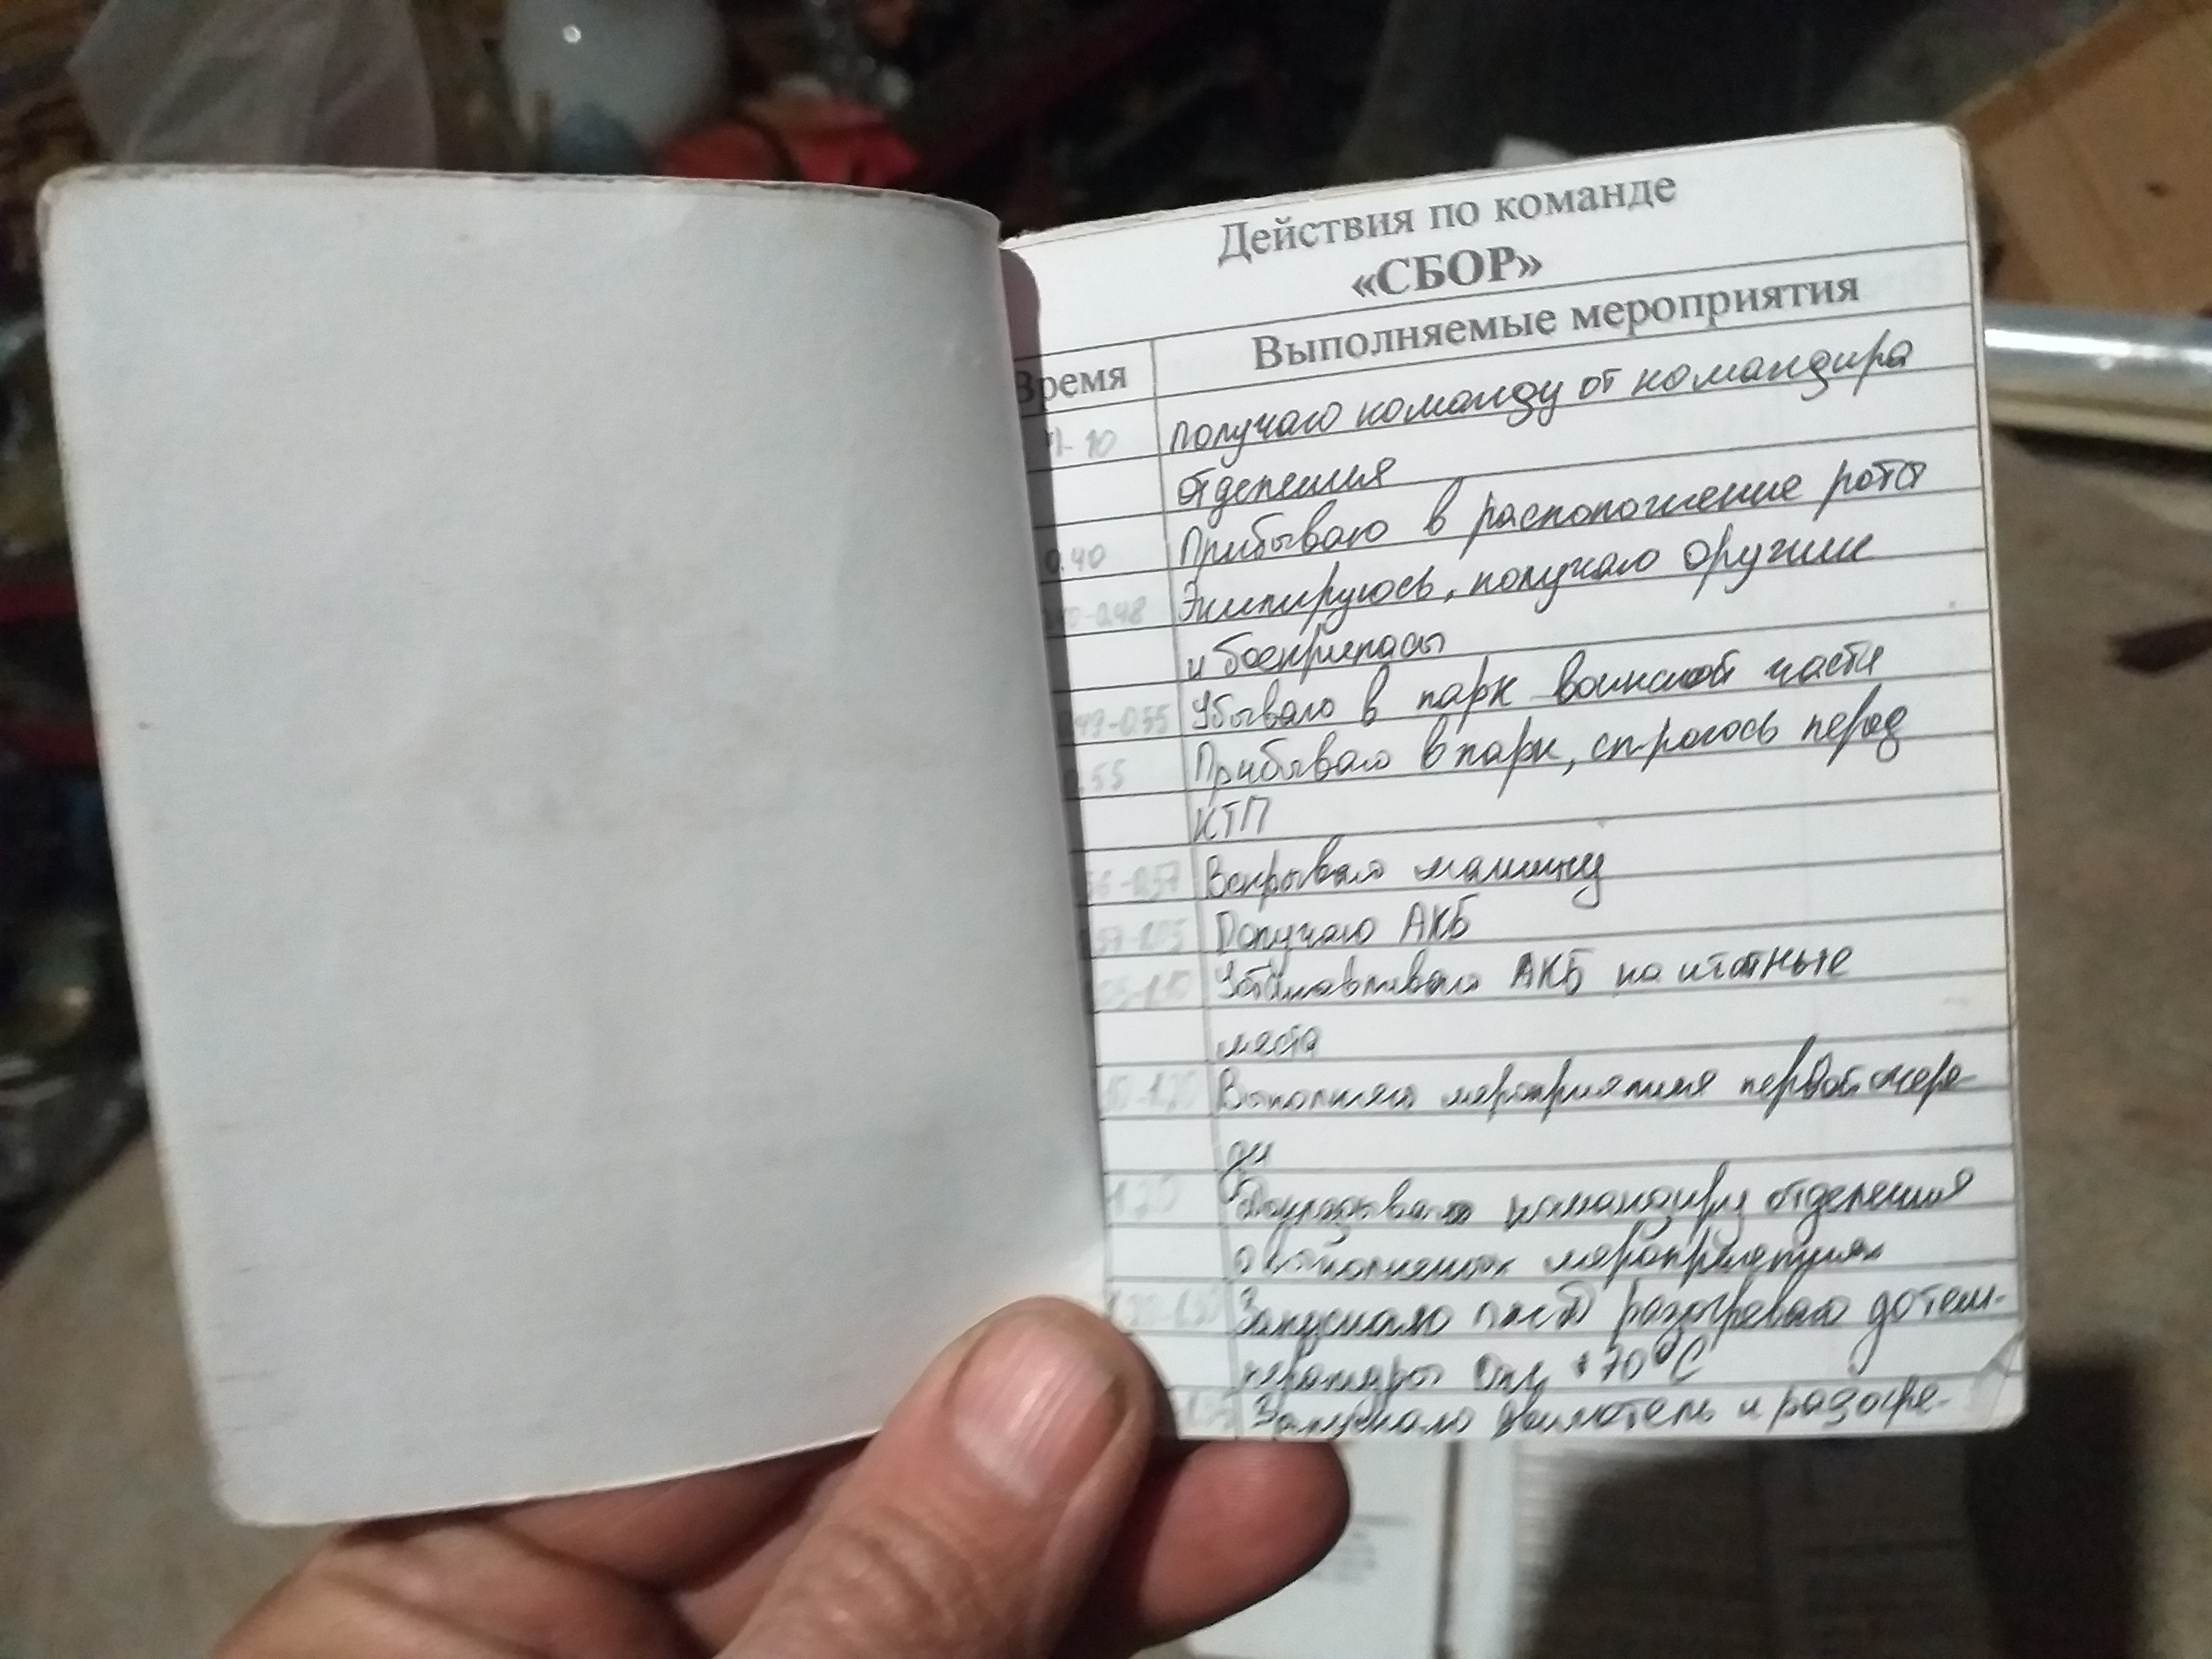 Действия по команде
«СБОР»
Время Выполняемые мероприятия
Ч-10 Получаю команду от командира
отделения
0.40 Прибываю в расположение роты
0-0.48 Экипируюсь, получаю оружие
и боеприпасы
49-0.55 Убываю в парк воинской части
.55 Прибываю в парк, строюсь перед
КТП
56-0.57 Вскрываю машину
57-1.05 Получаю АКБ
05-1.10 Устанавливаю АКБ на штатные
места
10-1.20 Выполняю мероприятия первой очере-
ди
1.20 Докладываю командиру отделения
о выполненых мероприятиях
Запускаю разогреваю до тем-
пературы +70°C
Запускаю двигатель и разогре-